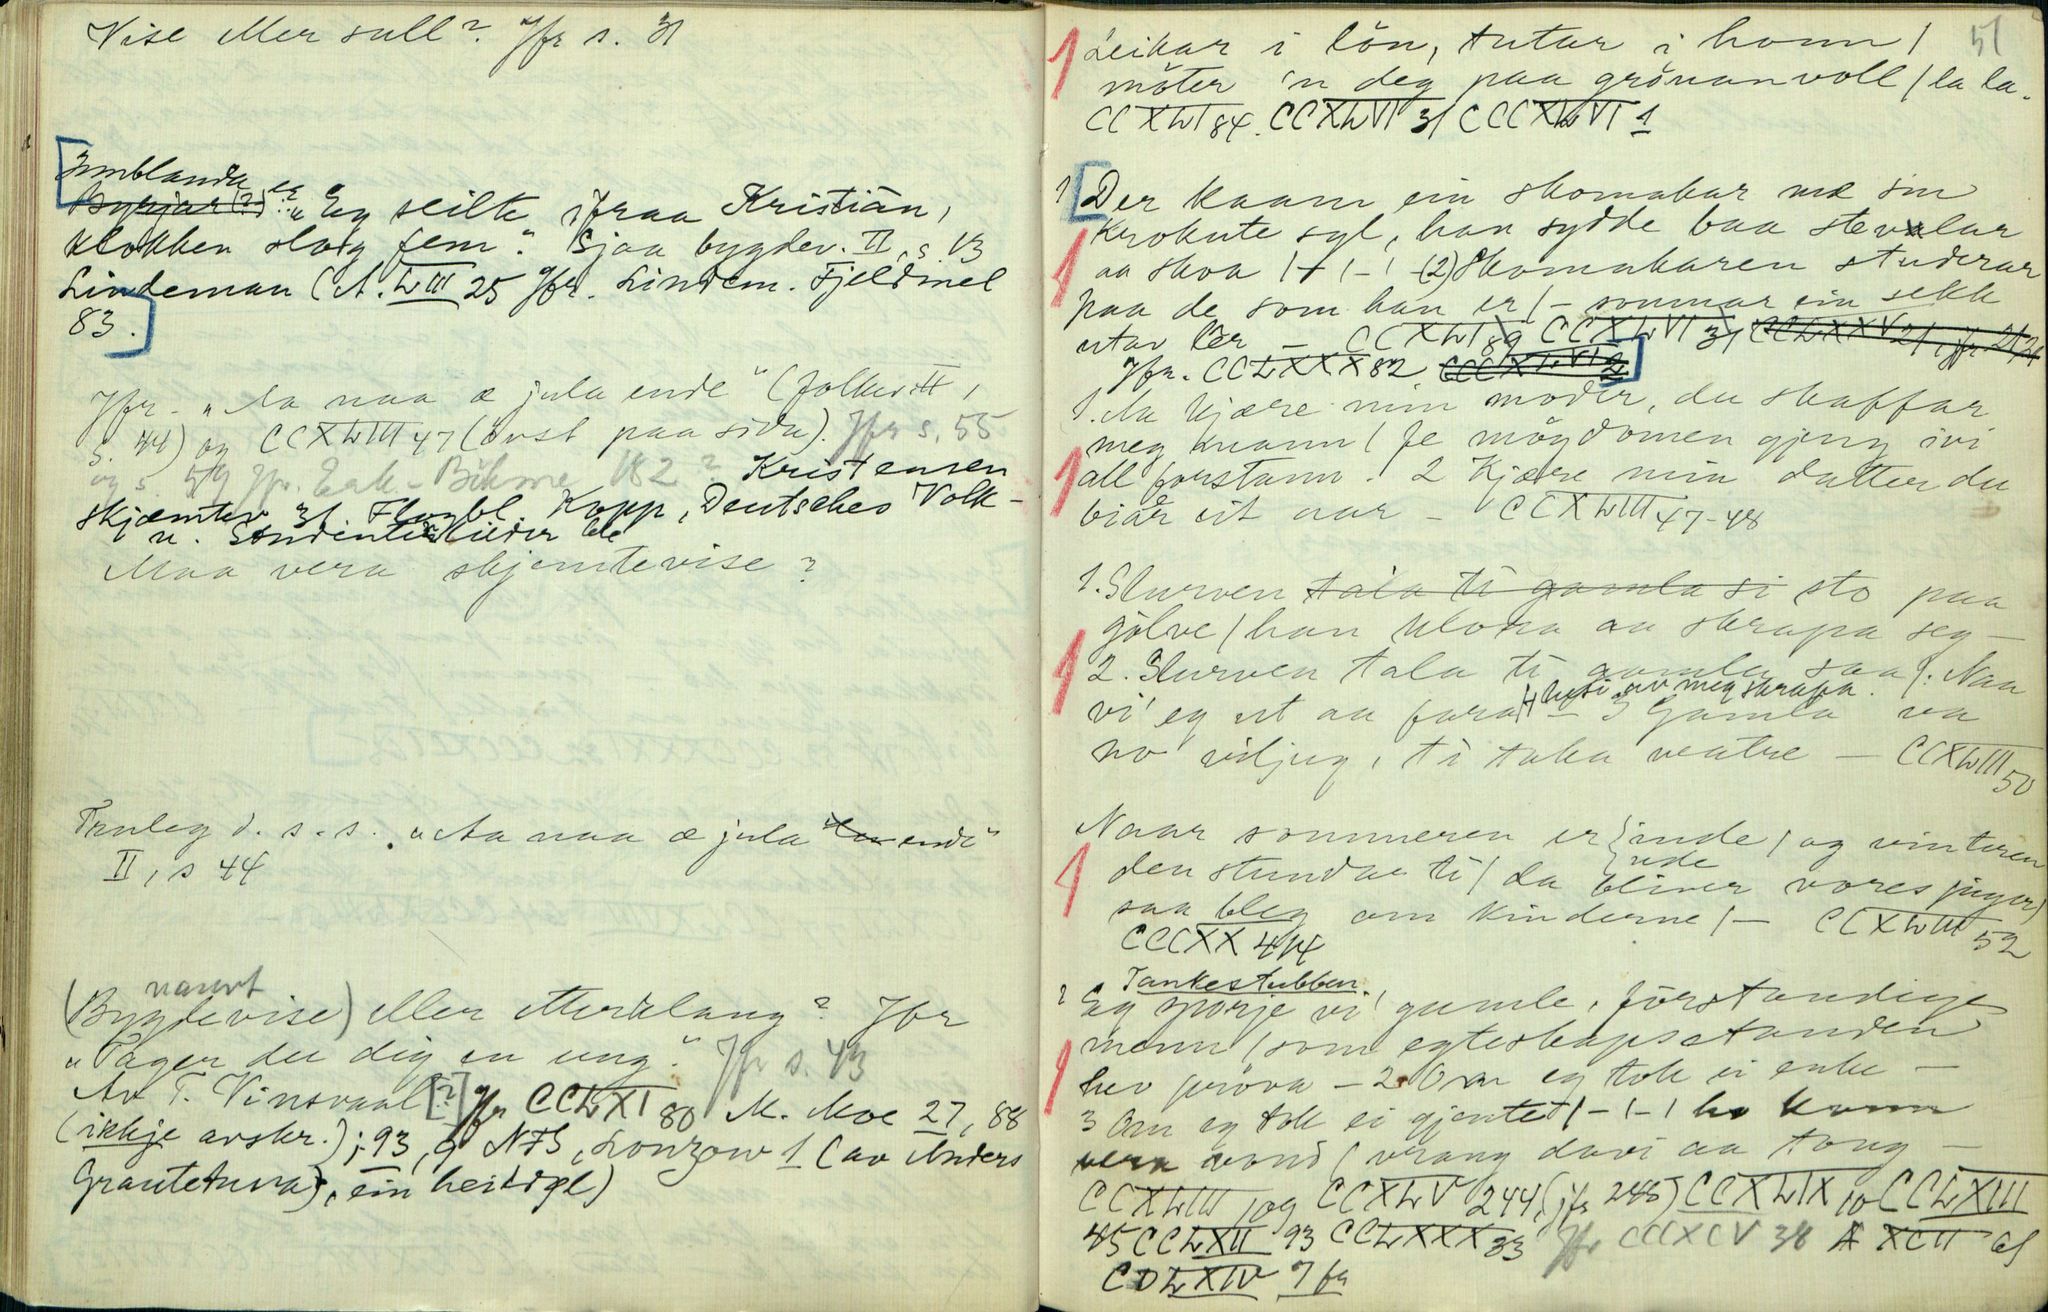 Vise eller sull? Jfr s. 31
Innblanda er
Byrjar (?): "Eg seilte ifraa Kristian,
klokken slog fem". Sjaa bygdev. II, s. 13
Lindeman (A. LIII 25 Jfr. Lindem. Fjeldmel
83.
Jfr. "Aa naa æ jula ende" (folkev. II,
s. 44) og CCXLIII 47 (øvst paa sida). Jfr s. 55
og s. 59 Jfr. Erk-Böhme 182? Kristensen
skjæmtev. 31 Flogbl. Kopp, Deutsches Volk-
u. Studentenlieder
Maa vera skjemtevise?
Truleg d. s. s. "Aa naa æ jula ende"
II, s 44
nauvt
(Bygdevise) eller etterklang? Jfr
"Tager du dig en ung". Jfr s. 43
Av T. Vinsvaal [?] Jfr CCLXI 80 M. Moe 27, 88
(ikkje avskr.); 93, 9 NFS, Lonzow 1 (av Anders
Grautetuva), ein heil del)
51
Leikar i lön, tutar i honn /
möter 'n deg paa grönan voll / la la.
CCXLI 84. CCXLVI 31 CCCXLVI 1
1 Der kaam ein skomakar mæ sin
krokute syl, han sydde baa stevelar
aa skoa / - / - / - (2) Skomakaren studerar
paa de som han er / - sommar ein sekk
utav lær - CCXLI 89 CCXLVI 31 CCLXXV 21, jfr 21
Jfr. CCLXXX 82 CCCXLVI 2
1. Aa kjære min moder, du skaffar
meg mann / fe möydomen gjeng ivi
all forstann. 2 Kjære min datter du
biar eit aar - CCXLIII 47-48
1. Slurven tala ti gamla si sto paa
gölve / han klora aa skrapa seg -
2. Slurven tala ti gamla saa /: Naa
vi' eg ut aa fara / - 3 Gamla va
no viljug, ti taka veatre - CCXLIII 50
Naar sommeren er {inde / og vinteren
ude
den stundar ti / da bliver vores piger
saa bleg om kinderne / - CCXLIII 52
CCCXX 414
Tankestubben.
Eg sporje vi gamle, forstandige
menn / som egteskapsstanden
hev pröva - 2. Om eg tok ei enke -
3 Om eg tok ei gjente / - / - / ho kunn
vera vond / vrang davi aa tong -
CCXLIII 1 og CCXLV 244, (jfr 245) CCXLIX 10 CCLXIII
45 CCLXII 93 CCLXXX 83 Jfr CCCXCV 38 A XCII 61
CDLXIV 7 fr